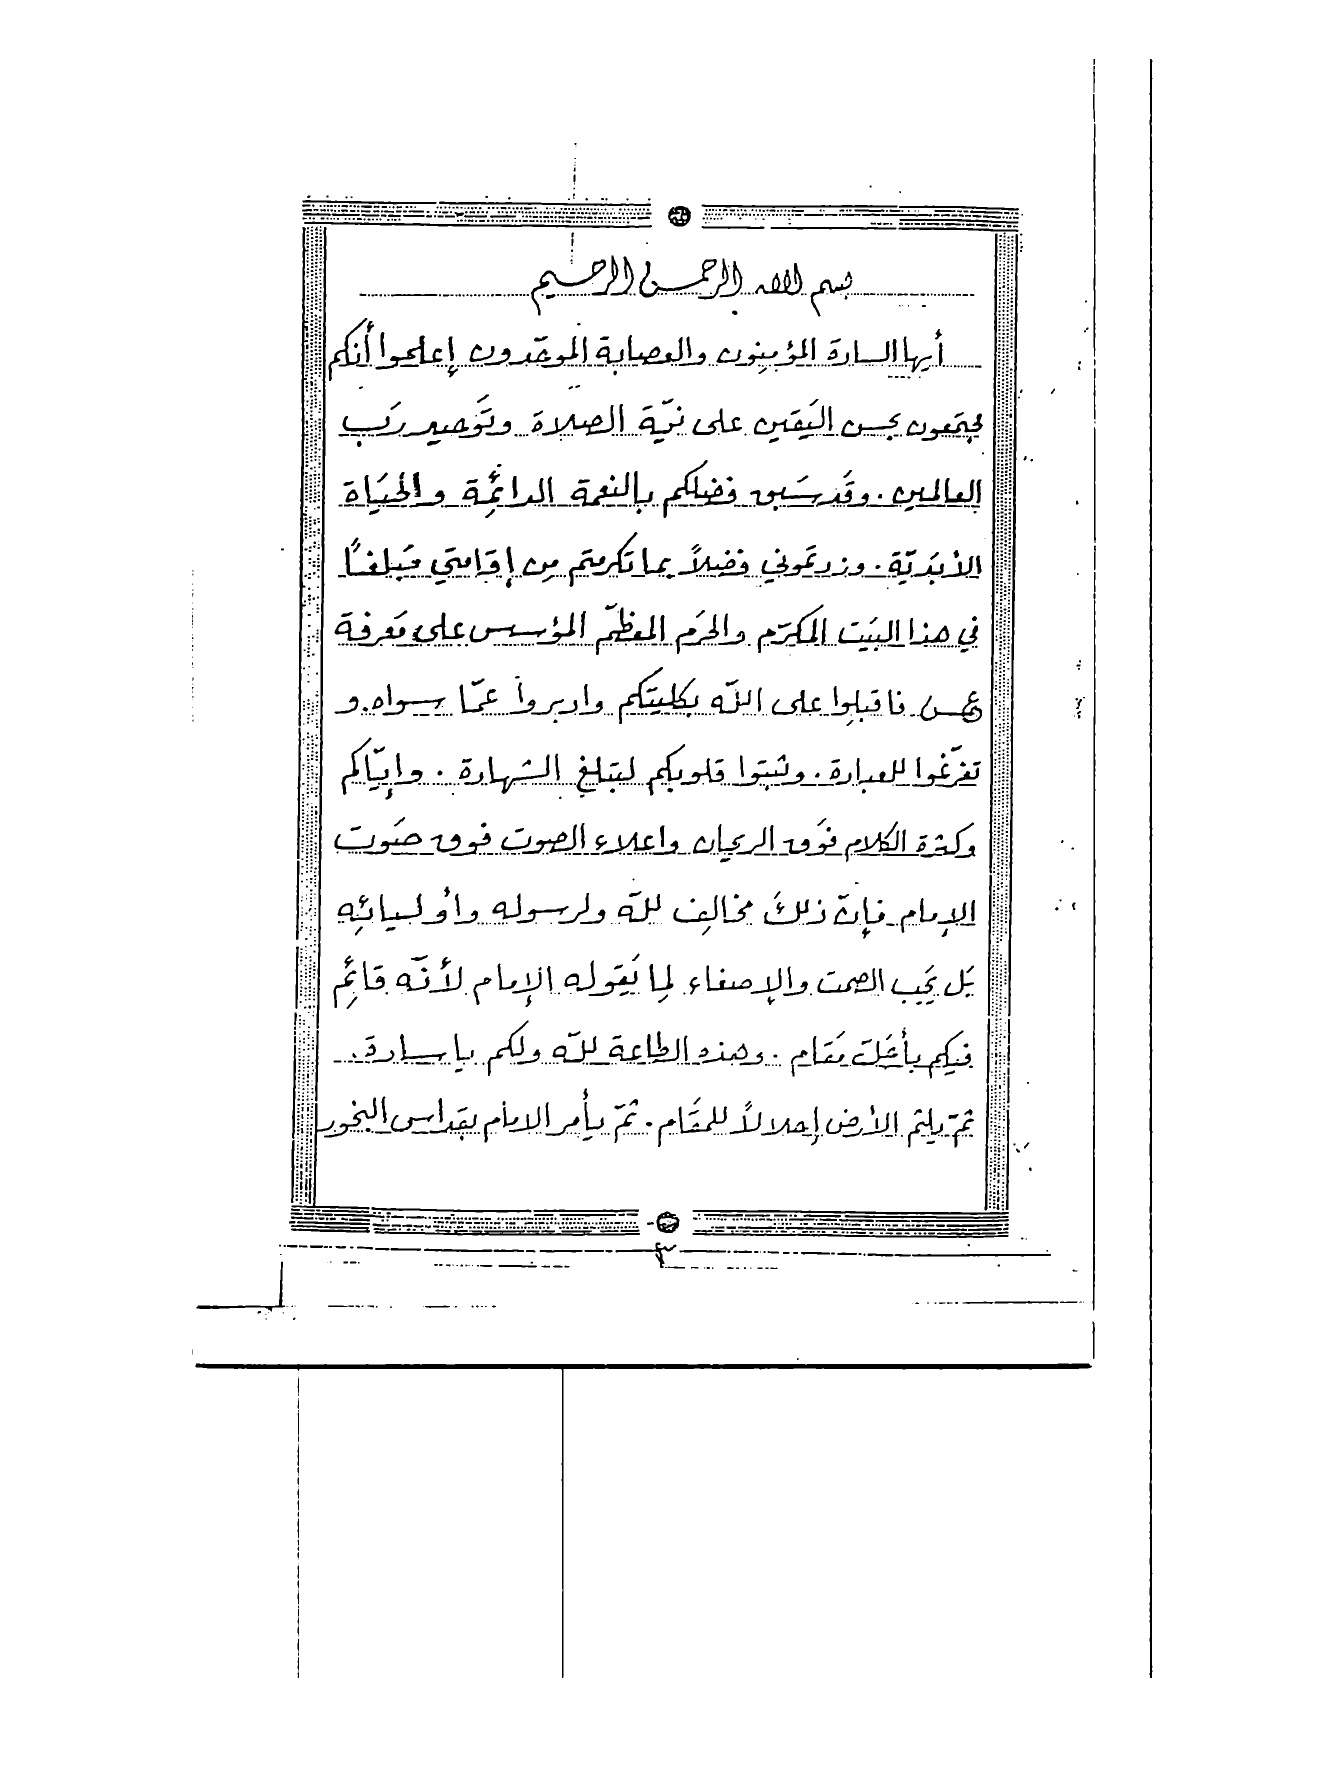 بسم الله الرحمن الرحيم
أيها السادة المؤمنون والعصابة الموحّدون إعلموا أنكم
مجتمعون بحسن اليَقين على نيّة الصلاة وتَوحيد رَب
العالمين. وقَد سَبق فضلكم بالنعمة الدائمة والحيَاة
الأبَديّة. وزدتموني فضلاً بما تكرمتم من إقامتي مُبلغاً
في هذا البَيت المكرّم والحرَم المعظّم المؤسس على مَعرفة
فاقبلوا على اللّه بكليتكم وادبروا عمّا سواه. و
تفرّغوا للعبادة. وثبتوا قلوبكم لتبلغ الشهادة. وإيّاكم
وكثرة الكلام فوَق الريحان واعلاء الصوت فوق صَوت
الإمام. فإنّ ذلكَ مخالف للّه ولرسوله وأوليائه
بَل يَجب الصمت والإصغاء لِما يَقوله الإمام لأنّه قائم
فيكم بأعلى مَقام. وهذه الطاعة للّه ولكم ياسادة.
ثمّ يلثم الأرض إجلالاً للمقَام. ثمّ يأمر الامام بقداس البخور
٣